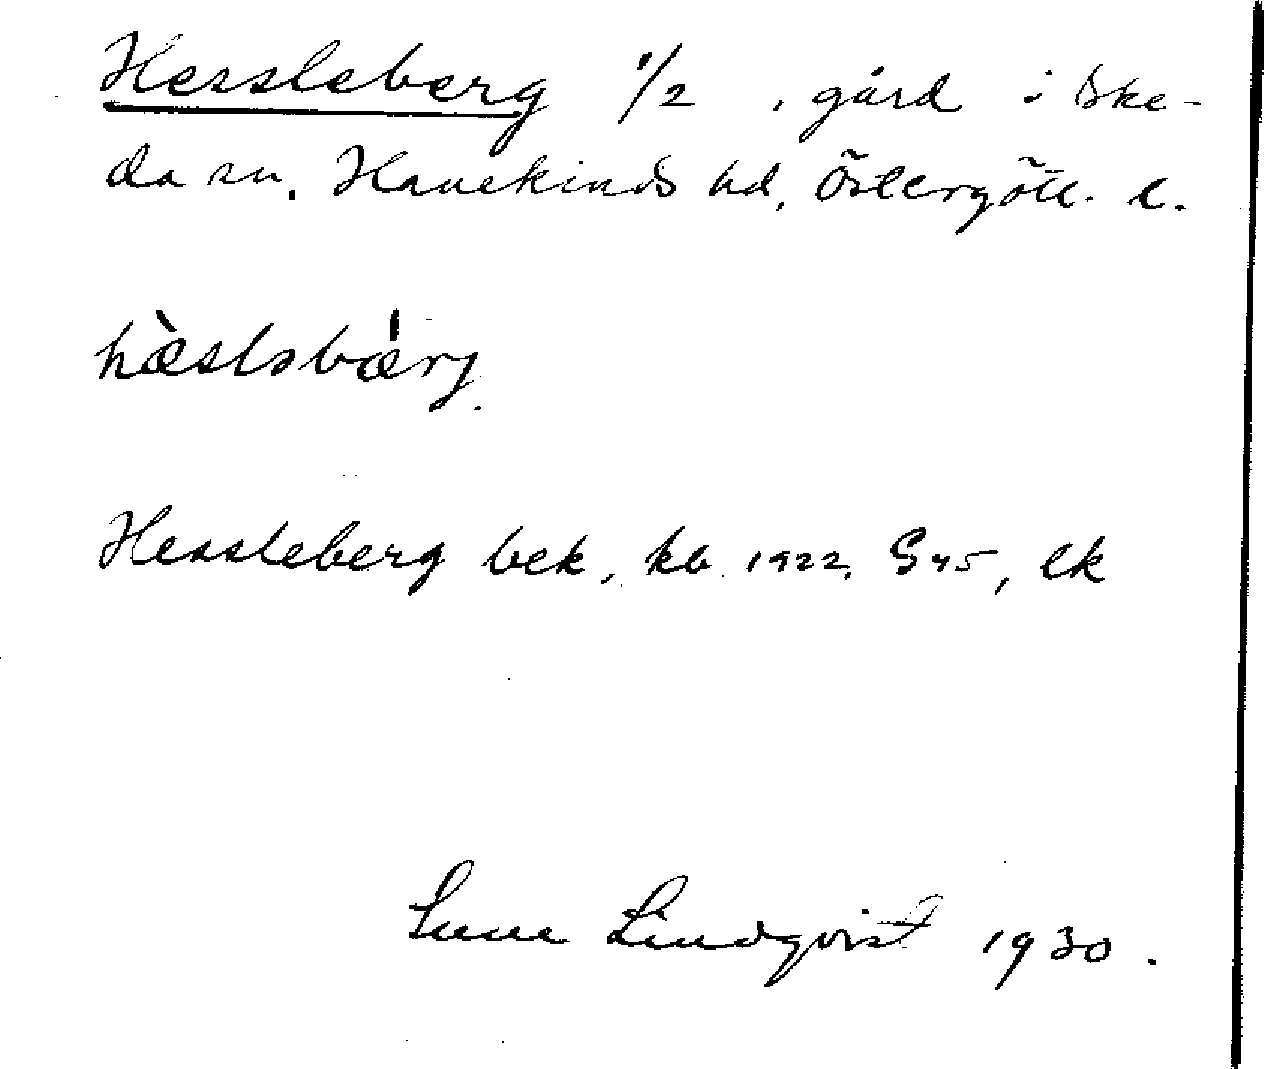 Hessleberg 1/2, gård i Ske-
da sn. Hanekinds hd, Östergötl. l.
hæ̀sləbæ̀rj.
Hessleberg bek, kb 1922, S45, ek
Sune Lindqvist 1930.